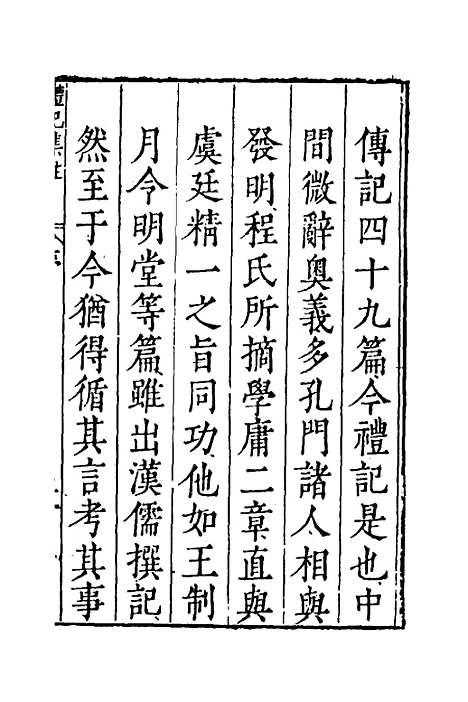 傳記四十九篇今禮記是也中
間微辭奧義多孔門諸人相與
發明程氏所摘學庸二章直與
虞廷精一之旨同功他如王制
月令明堂等篇雖出漢儒撰記
然至于今猶得循其言考其事
禮記集註